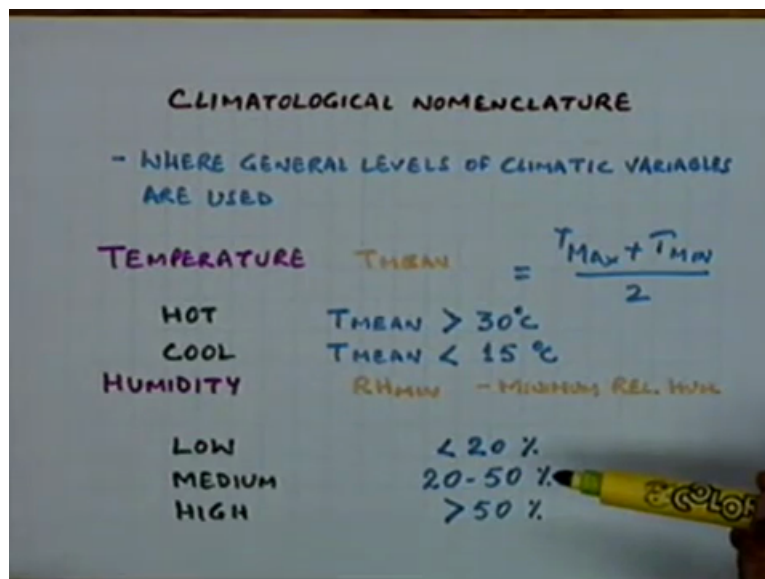 CLIMATOLOGICAL NOMENCLATURE
- WHERE GENERAL LEVELS OF CLIMATIC VARIABLES
ARE USED
TEMPERATURE TMEAN = TMAX + TMIN / 2
HOT TMEAN > 30°C
COOL TMEAN < 15 °C
HUMIDITY RHMIN - MINIMUM REL. HUM.
LOW < 20 %
MEDIUM 20-50 %
HIGH > 50 %
COLOR